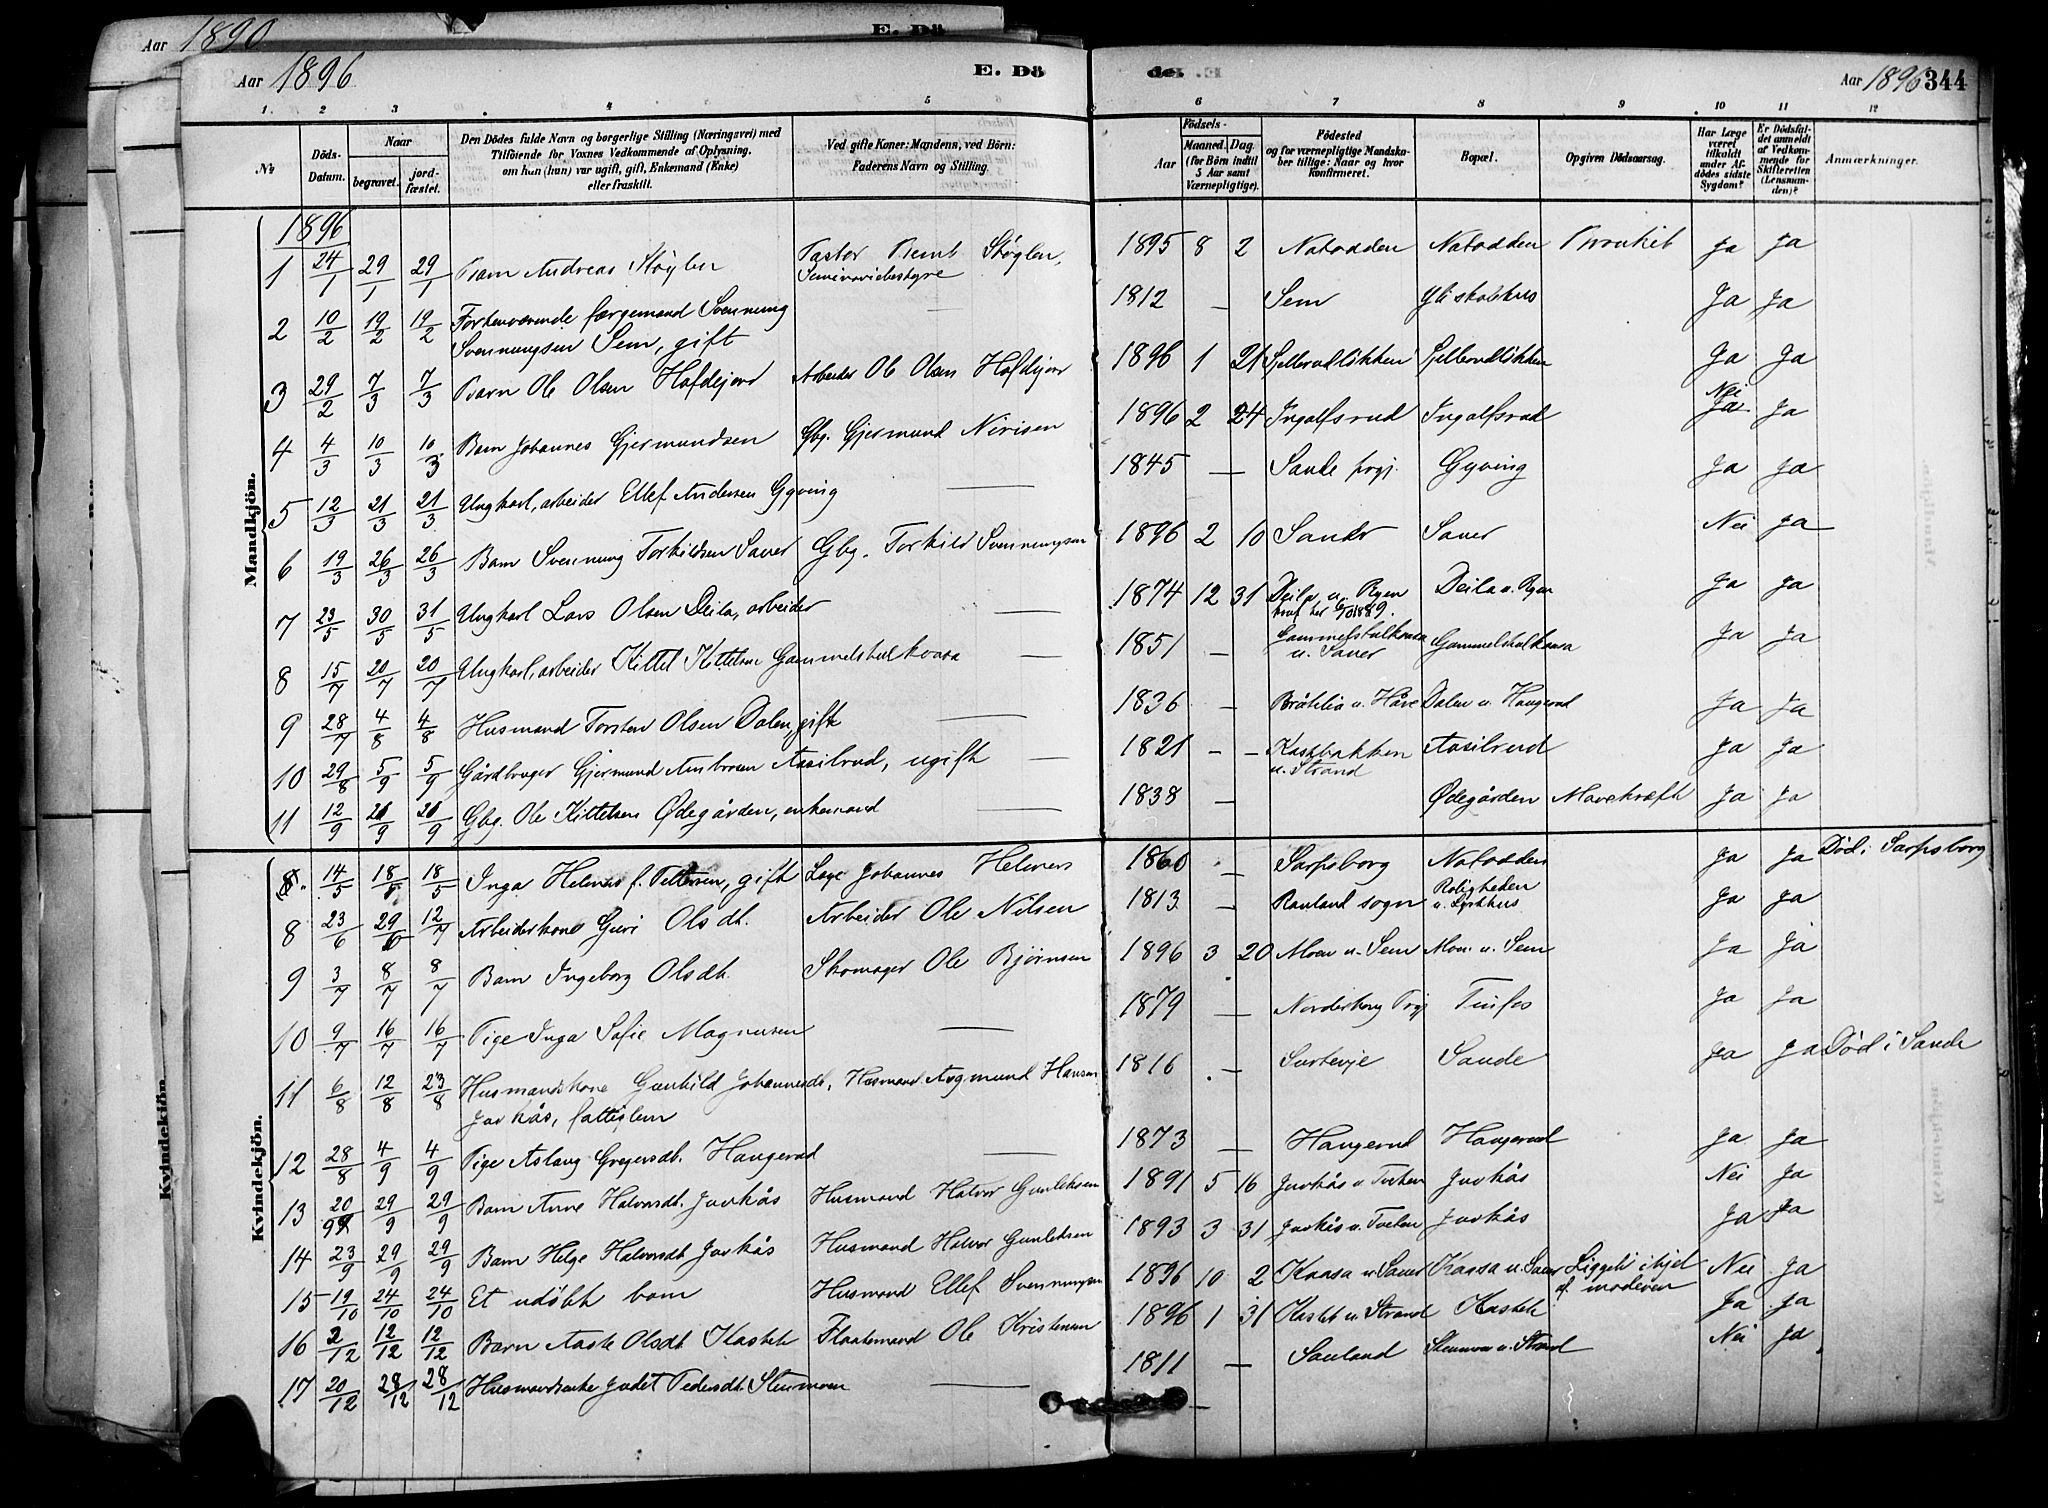 Aar 1890 E. Dö
Aar 1896 E. Dö
1. 2 3 4 5
№ Döds-Datum. Naar begravet. jord-fæstet. Den Dödes fulde Navn og borgerlige Stilling (Næringsvei) med Tilföiende for Voxnes Vedkommende af Oplysning, om han (hun) var ugift, gift, Enkemand (Enke) eller fraskilt. Ved gifte Koner: Mandens, ved Börn: Faderens Navn og Stilling.
Mandkjön.
1896
1 24/1 29/1 29/1 Barn Andreas Støylen Pastor Bernt Støylen,
Seminariebestyrer
2 10/2 19/2 19/2 Forhenværende færgemand Svennung
Svennungsen Sem, gift
3 29/2 7/3 7/3 Barn Ole Olsen Hofdejord Arbeider Ole Olsen Hofdejord
4 4/3 10/3 10/3 Barn Johannes Gjermundsen Gbg. Gjermund Nirisen
5 12/3 21/3 21/3 Ungkarl, arbeider Ellef Andersen Gyving —
6 19/3 26/3 26/3 Barn Svennung Torkildsen Sauer Gbg. Torkild Svennungsen
7 23/5 30/5 31/5 Ungkarl Lars Olsen Deila, arbeider —
8 15/7 20/7 20/7 Ungkarl, arbeider Kittel Kittelsen Gammelstulkaasa —
9 28/7 4/8 4/8 Husmand Torsten Olsen Dalen, gift —
10 29/8 5/9 5/9 Gårdbruger Gjermund Aasilrud, ugift —
11 12/9 26/9 26/9 Gbg. Ole Kittelsen Ødegården, enkemand —
Kvindekjön.
14/5 18/5 18/5 Inga Helmers f. Pettersen, gift Læge Johannes Helmers
8 23/6 29/6 12/7 Arbeiderkone Guri Olsdt. Arbeider Ole Nilsen
9 3/7 8/7 8/7 Barn Ingeborg Olsdt. Skomager Ole Bjørnsen
10 9/7 16/7 16/7 Pige Inga Sofie Magnusen —
11 6/8 12/8 23/8 Husmandskone Gunhild Johannesdt, Husmand Aagmund Hansen
Juvkås, fattiglem
12 28/8 4/9 4/9 Pige Aslaug Gregersdt. Haugerud —
13 20/9 29/9 29/9 Barn Anne Halvorsdt. Juvkås Husmand Halvor Gunleksen
14 23/9 29/9 29/9 Barn Helge Halvorsdt Juvkås Husmand Halvor Gunleksen
15 19/10 24/10 24/10 Et udøbt barn Husmand Ellef Svennungsen
16 2/12 12/12 12/12 Barn Aaste Olsdt Kastet Flaatemand Ole Kristensen
17 20/12 28/12 28/12 Husmandsenke Judet Pedersdt. Stenmoen —
de. Aar 1896 344
6 7 8 9 10 11 12
Födsels- Aar Maaned. Dag. (for Börn indtil 5 Aar samt Værnepligtige). Födested og for værnepligtige Mandska-ber tillige: Naar og hvor konfirmeret. Bopæl. Opgiven Dödsaarsag. Har Læge været tilkaldt under Af-dödes sidste Sygdom? Er Dödsfal-det anmeldt af Vedkom-mende for Skifteretten (Lensman-den)? Anmærkninger.
1895 8 2 Notodden Notodden Bronkit Ja Ja
1812 — Sem Ja Ja
1896 1 21 Ja Ja
1896 2 24 Ingolfsrud Ingolfsrud Nei Ja Ja
1845 — Sande prgj. Gyving Ja Ja
1896 2 10 Sauer Nei Ja
1874 12 31 Deila u. Ryen Deila u. Ryen Ja Ja
1851 — Gammelstulkaasa
u. Sauer Gammelstulkaasa Ja Ja
1836 — u. Håve Dalen u. Haugerud Ja Ja
1821 — —
u. Strand Aasilrud Ja Ja
1838 — Ødegården Mavekræft Ja Ja
1860 — Sarpsborg Notodden Ja Ja Død i Sarpsborg
1813 — Rauland sogn Roligheden
Ja Ja
1896 3 20 Moen u. Sem Moen u. Sem Ja Ja
1879 — Tinfos Ja Ja
1816 — Sande Ja Ja Død i Sande
1873 — Haugerud Haugerud Ja Ja
1891 5 16 Juvkås u. Tveten Juvkås Nei Ja
1893 3 31 Juvkås u. Tveten Juvkås Ja Ja
1896 10 2 Kaasa u. Sauer Kaasa u. Sauer Liggeti ihjel
af moderen Nei Ja
1896 1 31 Kastet u. Strand Kastet Ja Ja
1811 — Sauland Stenmoen u. Strand Nei Ja